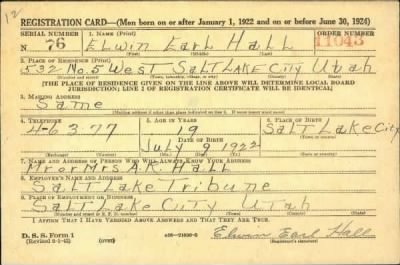 12
REGISTRATION CARD—(Men born on or after January 1, 1922 and on or before June 30, 1924)
SERIAL NUMBER 1. NAME (Print) ORDER NUMBER
N 76 Elwin Earl Hall 11043
(First) (Middle) (Last)
2. PLACE OF RESIDENCE (Print)
532 No. 5 West Salt Lake City Utah
(Number and street) (Town, township, village, or city) (County) (State)
[THE PLACE OF RESIDENCE GIVEN ON THE LINE ABOVE WILL DETERMINE LOCAL BOARD
JURISDICTION; LINE 2 OF REGISTRATION CERTIFICATE WILL BE IDENTICAL]
3. MAILING ADDRESS
Same
[Mailing address if other than place indicated on line 2. If same insert word same]
4. TELEPHONE 5. AGE IN YEARS 6. PLACE OF BIRTH
4-6377 19 Salt Lake City
DATE OF BIRTH
July 9 1922
(Exchange) (Number) (Mo.) (Day) (Yr.) (State or country)
7. NAME AND ADDRESS OF PERSON WHO WILL ALWAYS KNOW YOUR ADDRESS
Mr or Mrs A.K. Hall
8. EMPLOYER'S NAME AND ADDRESS
Salt Lake Tribune
9. PLACE OF EMPLOYMENT OR BUSINESS
Salt Lake City Utah
(Number and street or R. F. D. number) (Town) (County) (State)
I AFFIRM THAT I HAVE VERIFIED ABOVE ANSWERS AND THAT THEY ARE TRUE.
D. S. S. Form 1 (over) Elwin Earl Hall
(Revised 6-1-42) (Registrant's signature)